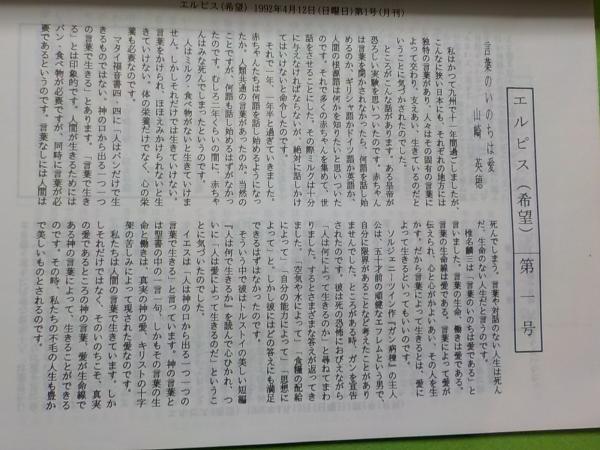 エルピス(希望) 1992年4月12日(日曜日)第1号(月刊)
エルピス(希望) 第一号
言葉のいのちは愛
山﨑 英穂
私はかつて九州で十一年間過ごしましたが、
こんなに狭い日本にも、それぞれの地方には
独特の言葉があり、人々はその固有の言葉に
よって交わり、支えあい、生きているのだと
いうことに気づかされたのでした。
ところがこんな話があります。ある皇帝が
恐ろしい実験を思いついたのです。赤ちゃん
は言葉を聞かされなかったら、何語を話し始
めるのか。ギリシャ語かドイツ語か英語か。
人間の根源語が何かを知りたいと思いついた
のです。これで多くの赤ちゃんを集めて、世
話をさせることにした。その際ミルクは十分
に与えなければならないが、絶対に話しかけ
てはいけないと命令したのです。
それで一年、一年半と過ぎていきました。
赤ちゃんたちは何語を話し始めるようになっ
たか、人類共通の言葉があったのか。当然の
ことですが、何語も話し始めるはずがなかっ
たのです。むしろ二年くらいの間に、赤ちゃ
んはみな死んでしまったというのです。
人はミルク、食べ物がないと生きていけま
せん。しかしそれだけでは生きていけない。
言葉をかけられ、ほほえみかけられないと生
きていけない。体の栄養だけでなく、心の栄
養も必要なのです。
マタイ福音書四・四に「人はパンだけで生
きるものではない。神の口から出る一つ一つ
の言葉で生きる」とあります。「言葉で生き
る」とは印象的です。人間が生きるためには
パン・食べ物が必要ですが、同時に言葉が必
要であるというのです。言葉なしには人間は
死んでしまう。言葉や対話のない人生は死ん
だ、生命のない人生だと言うのです。
椎名麟三は「言葉のいのちは愛である」と
言いました。言葉の生命、働きは愛である。
言葉の生命線は愛である。言葉によって愛が
伝えられ、心と心がかよいあい、その人を生
かす。だから言葉によって生きるとは、愛に
よって生きるといってもいいのです。
ソルジェニーツィン作『ガン病棟』の主人
公はオ五才前の頑健なエフレムという男で、
自分に限界があることなど考えたことがあり
ませんでした。ところがある時、ガンを宣告
されたのです。彼は死の恐怖におびえながら
「人は何によって生きるのか」と尋ねてまわ
りました。するとさまざまな答えが返ってき
ました。「空気や水によって」「食糧の配給
によって」「自分の能力によって」「思想に
よって」と。しかし彼にはどの答えにも満足
できるはずはなかったのです。
そういう中で彼はトルストイの美しい短編
『人は何で生きるか』を読んで心ひかれ、つ
いに「人は愛によって生きるのだ」というこ
とに気づいたのでした。
イエスは「人は神の口から出る一つ一つの
言葉で生きる」と言っています。神の言葉と
は聖書の中の一言一句、しかもその言葉の生
命と働きは、真実の神の愛、キリストの十字
架の苦しみによって現された愛なのです。
私たちは人間の言葉で生きています。しか
しそれだけではなく、そのいのちこそ、真実
の愛であるところの神の言葉、愛が生命線で
ある神の言葉によって、生きることができる
のです。その時、私たちの不毛の人生も豊か
で美しいものとされるのです。